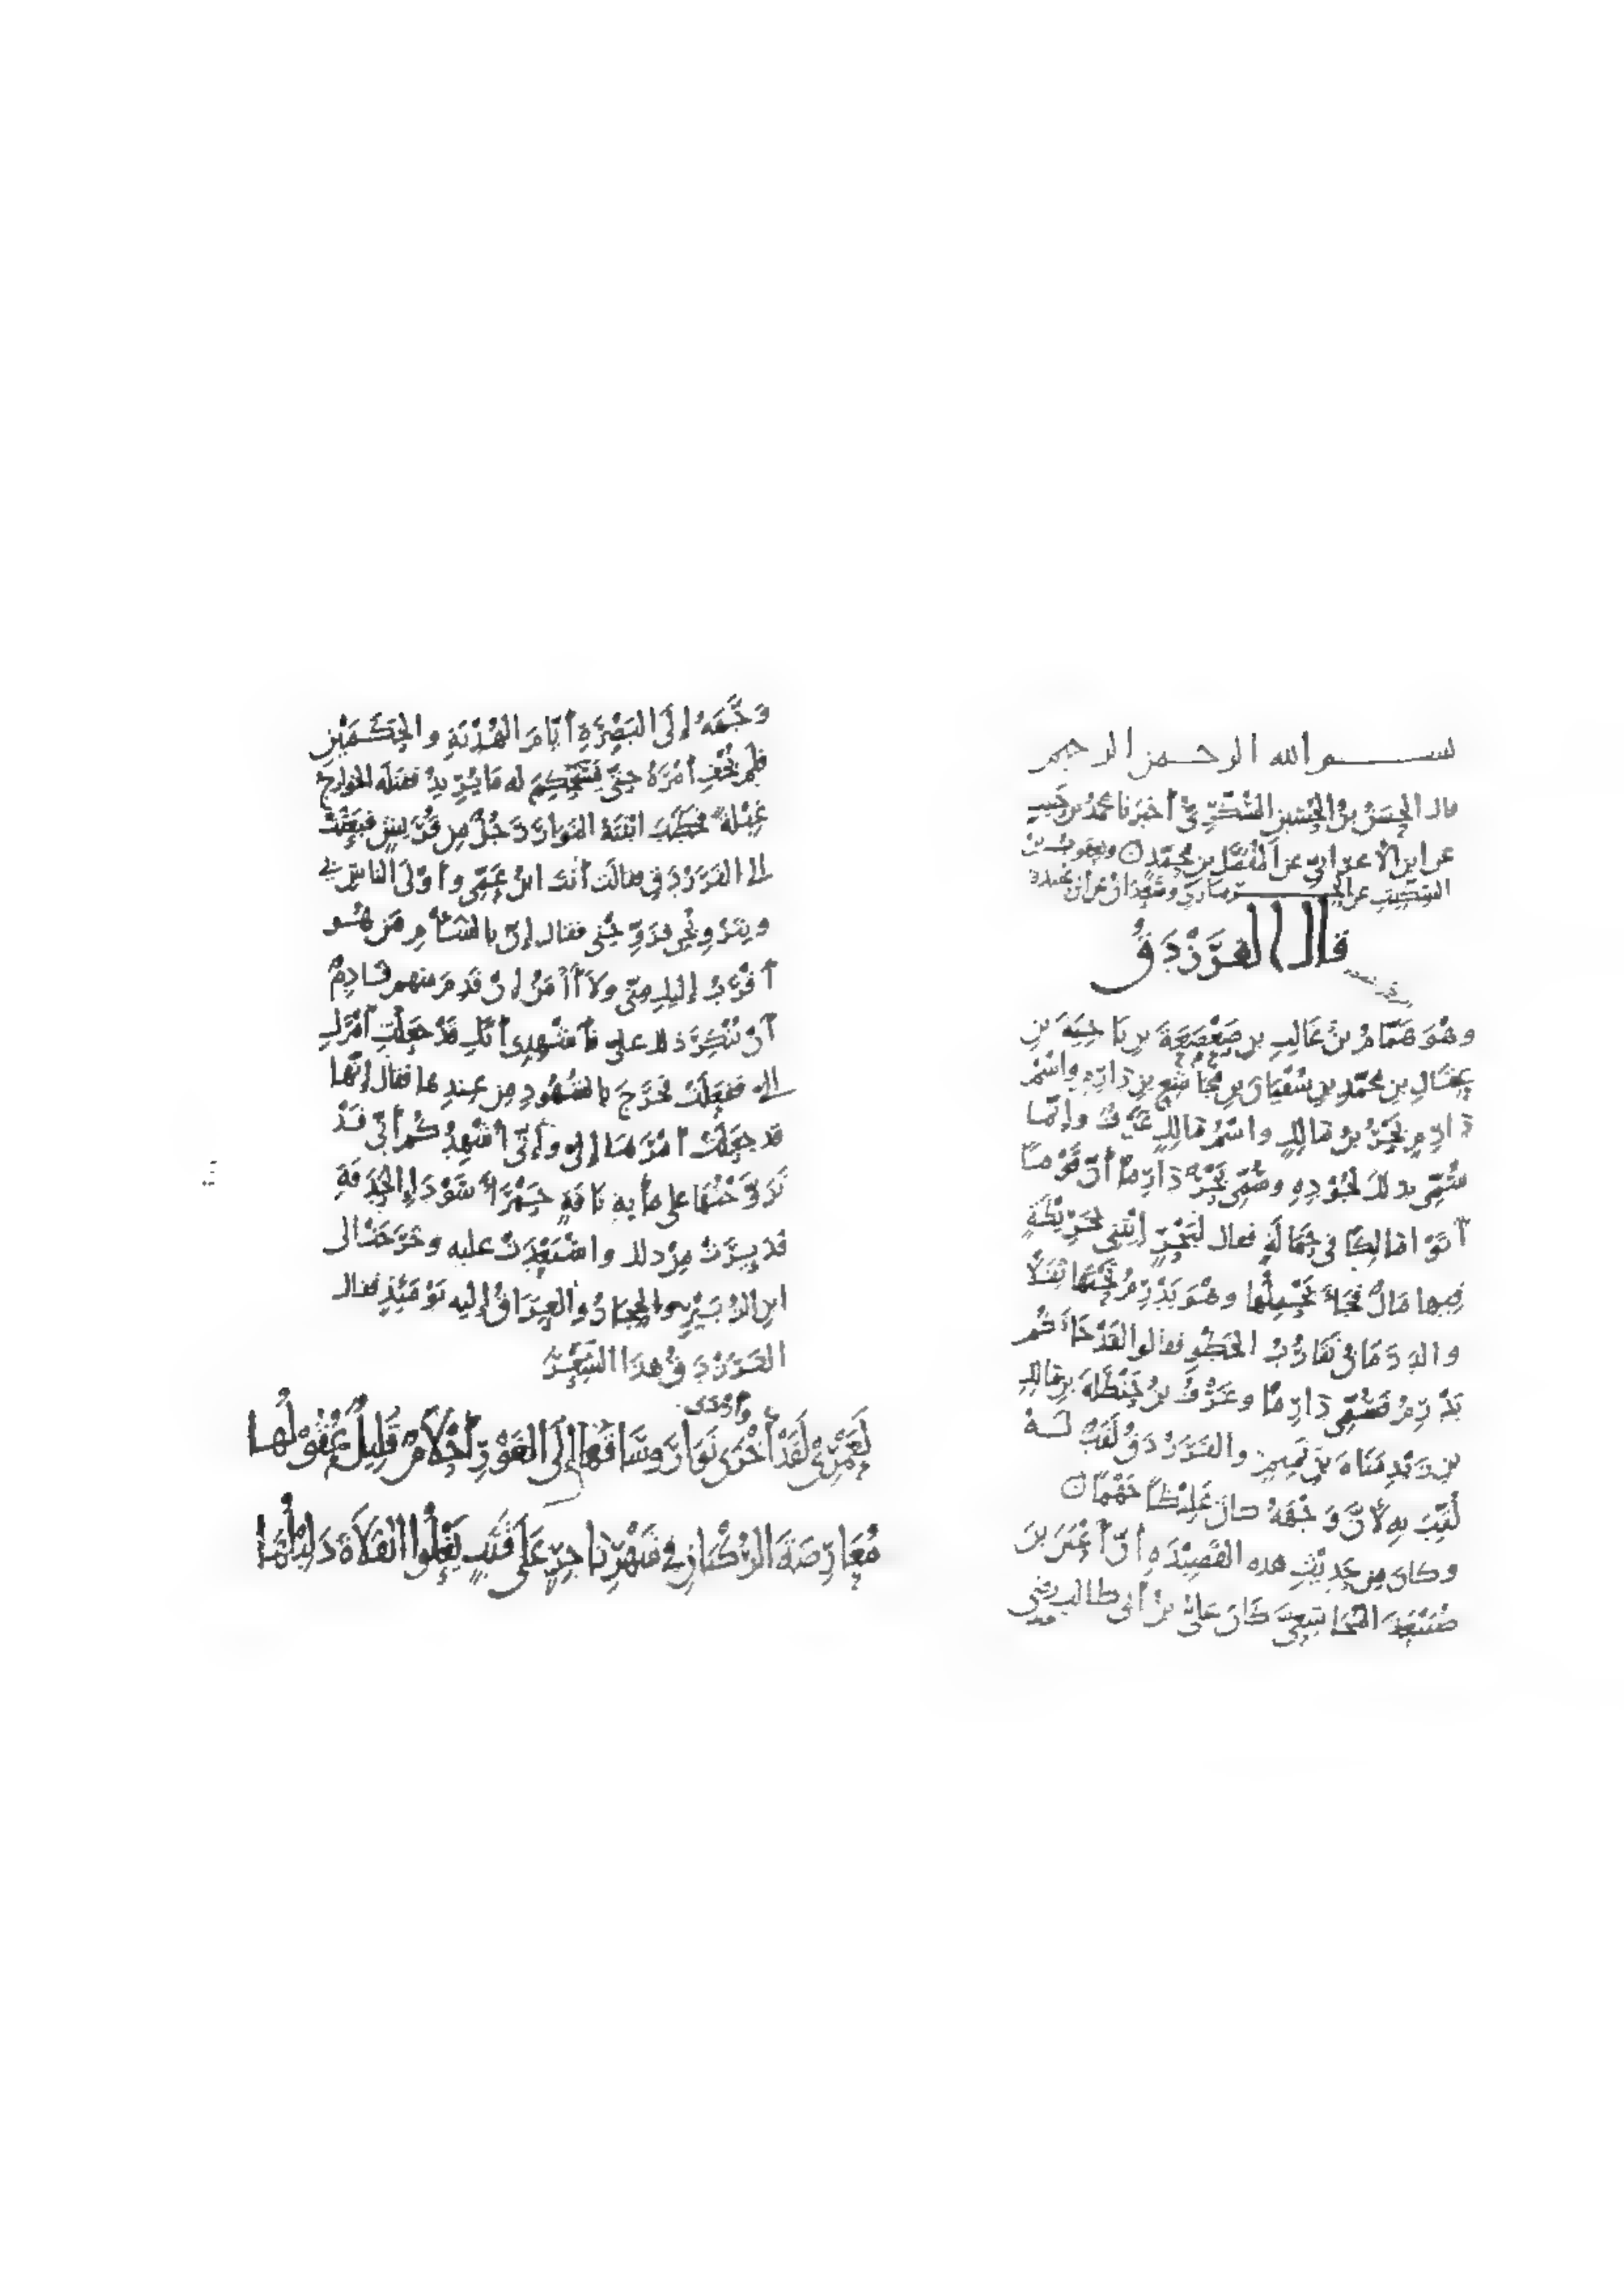 بسم الله الرحمن الرحيم
قال الحَسَنُ بنُ الحُسَينِ السُّكَّرِيُّ أخبرنا محمّدُ بن حَبيب
عن ابنِ الأعرابيِّ عن المُفَضَّلِ بنِ مُحَمَّدٍ ويعقوبُ بن
السِّكِّيتِ عن
قال الفَرَزْدَقُ
وهُوَ هَمَّامُ بْنُ غَالِبِ بنِ صَعْصَعَةَ بنِ نَاجِيَةَ بنِ
عِقَالِ بنِ مُحَمَّدِ بنِ سُفْيَانَ بنِ مُجَاشِعِ بنِ دَارِمٍ واسْمُ
دَارِمٍ بَحْرُ بنُ مَالِكٍ واسْمُ مَالِكٍ عَرْفٌ وإنَّمَا
سُمِّيَ بذلكَ لِجُودِهِ وسُمِّيَ بَحْرٌ دَارِمًا أنَّ قَوْمًا
أتَوْا مَالِكًا في حَمَالَةٍ فقال لِبَحْرٍ ائْتِنِي بخَرِيْطَةٍ
فيها مَالٌ فَجَاءَ يَحْمِلُهَا وهُوَ يَدْرِمُ تَحْتَهَا ثِقَلًا
والدَّرَمَانُ تَقَارُبُ الخَطْوِ فقالوا لَقَدْ جَاءَكُم
يَدْرِمُ فَسُمِّيَ دَارِمًا وعَرْفُ بنُ حَنْظَلَةَ بنِ مالِكِ
بنِ زَيْدِ مَنَاةَ بنِ تَمِيمٍ والفَرَزْدَقُ لَقَبٌ لَهُ
لُقِّبَ بِهِ لأنَّ وَجْهَهُ كان غَلِيْظًا جَهْمًا
وكانَ مِن حَدِيْثِ هذه القَصِيْدَةِ أنَّ أَعْيَنَ بنَ
ضُبَيْعَةَ المُجَاشِعِيَّ كَانَ عَلِيُّ بنُ أبي طالبٍ رضي
وَجَّهَهُ إلَى البَصْرَةِ أيَّامَ الهُدْنَةِ والحَكَمَيْنِ
فلم يُخْفِ أمْرَهُ حتَّى يَسْتَحْكِمَ له مَا يُرِيدُ فقتله الخوارِجُ
غِيْلَةً فخَطَبَ ابْنَتَهُ النَّوارَ رَجُلٌ مِن قُرَيْشٍ فبَعَثَتْ
إلى الفَرَزْدَقِ فقالت أنت ابنُ عَمِّي وأوْلَى الناسِ بي
وبتَزْوِيجِي فزَوِّجْنِي فقال إنَّ بالشَّأْمِ مَن هُو
أقْرَبُ إليكِ مِنِّي ولا أأْمَنُ إنْ قَدِمَ منهم قَادِمٌ
أنْ يُنْكِرَ ذلك عليَّ فأَشْهِدِي أنَّكِ قَدْ جَعَلْتِ أمْرَكِ
إليَّ ففَعَلَتْ فخَرَجَ بالشُّهُودِ مِن عِندِها فقال إنَّها
قد جَعَلَتْ أمْرَهَا إليَّ وإنِّي أُشْهِدُكُم أنِّي قَدْ
تَزَوَّجْتُهَا على مِائَةِ نَاقَةٍ حَمْرَاءَ سَوْدَاءِ الحَدَقَةِ
فذَئِرَتْ مِن ذلك واسْتَعْدَتْ عليه وخَرَجَتْ إلى
ابنِ الزُّبَيْرِ والحِجَازُ والعِرَاقُ إليه يَوْمَئِذٍ فقال
الفَرَزْدَقُ هذا الشِّعْرَ
وأردى
لَعَمْرِي لَقَدْ أَخْزَى نَوَارَ وسَاقَهَا إلَى الغَوْرِ أَحْلَامٌ قَلِيلٌ عُقُولُهَا
مُعَارِضَةَ الرُّكْبَانِ في شَهْرِ نَاجِرٍ عَلَى قَتَبٍ يَعْلُوا الفَلَاةَ دَلِيْلُهَا